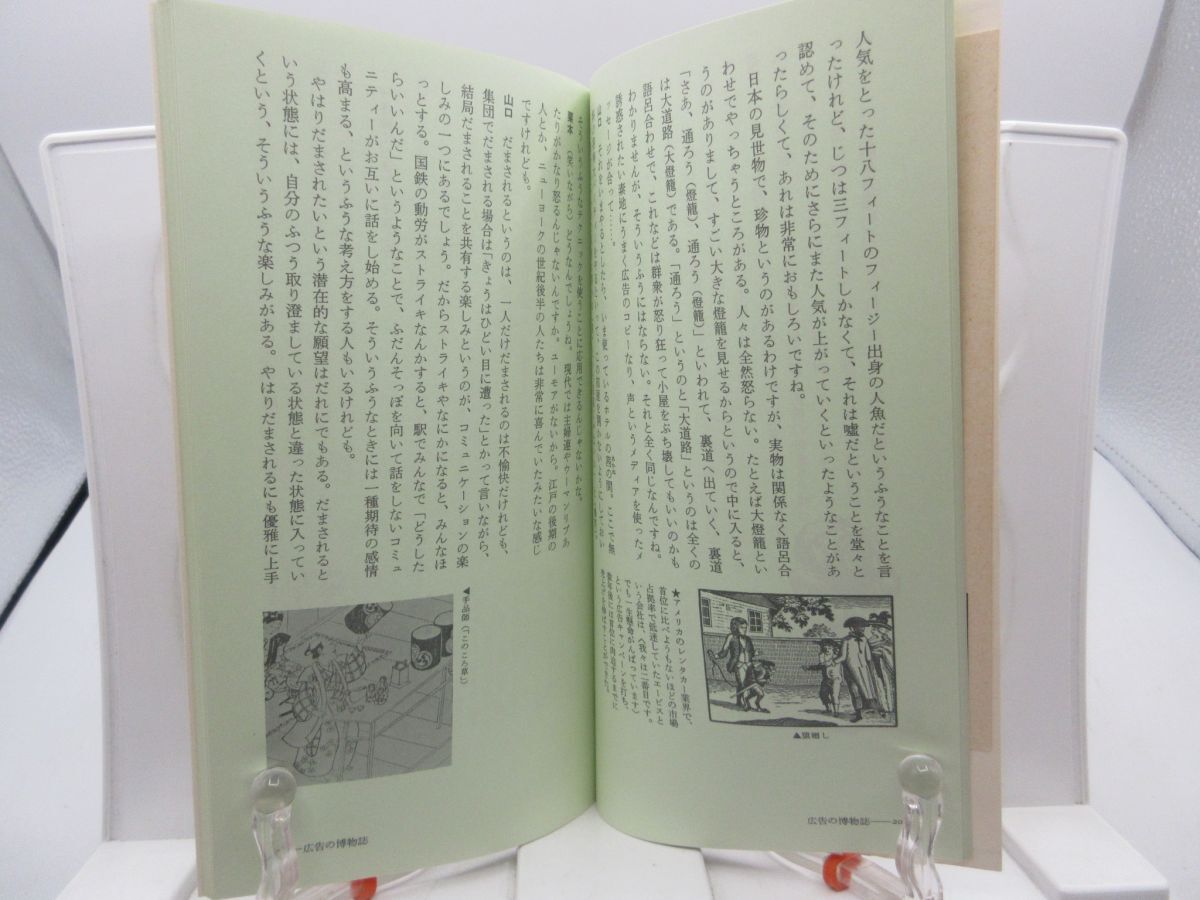 人気をとった十八フィートのフィージー出身の人魚だというふうなことを言
ったけれど、じつは三フィートしかなくて、それは嘘だということを堂々と
認めて、そのためにさらにまた人気が上がっていくといったようなことがあ
ったらしくて、あれは非常におもしろいですね。
日本の見世物で、珍物というのがあるわけですが、実物は関係なく語呂合
わせでやっちゃうところがある。人々は全然怒らない。たとえば大燈籠とい
うのがありまして、すごい大きな燈籠を見せるからというので中に入ると、
「さあ、通ろう（燈籠）、通ろう（燈籠）」といわれて、裏道へ出ていく、裏道
は大道路（大燈籠）である。「通ろう」というのと「大道路」というのは全くの
語呂合わせで、これなどは群衆が怒り狂って小屋をぶち壊してもいいのかも
わかりませんが、そういうふうにはならない。それと全く同じなんですね。
誘惑されたい素地にうまく広告のコピーなり、声というメディアを使ったメ
ッセージが合って……。
山口　それをいまやるとしたら、いま使っているホテルの
★アメリカのレンタカー業界で、
首位に比べようもないほどの市場
占拠率で低迷していたエービスと
いう会社は、〈我々は二番目です。
でも一生懸命がんばっています〉
という広告キャンペーンを打ち、
数年後には首位に肉迫するまでに
売上げを伸ばすことができた。
▲猿廻し
広告の博物誌——20
ニそういうふうなテクニックを使うことに応用できるんじゃないかな。
栗本　（笑いながら）どうなんでしょうね。現代では主婦連やウーマンリブあ
たりがかなり怒るんじゃないんですか。ユーモアがないから。江戸の後期の
人とか、ニューヨークの世紀後半の人たちは非常に喜んでいたみたいな感じ
ですけれども。
山口　だまされるというのは、一人だけだまされるのは不愉快だけれども、
集団でだまされる場合は「きょうはひどい目に遭った」とかって言いながら、
結局だまされることを共有する楽しみというのが、コミュニケーションの楽
しみの一つにあるでしょう。だからストライキやなにかになると、みんなほ
っとする。国鉄の動労がストライキなんかすると、駅でみんなで「どうした
らいいんだ」というようなことで、ふだんそっぽを向いて話をしないコミュ
ニティーがお互いに話をし始める。そういうふうなときには一種期待の感情
も高まる、というふうな考え方をする人もいるけれども。
やはりだまされたいという潜在的な願望はだれにでもある。だまされると
いう状態には、自分のふつう取り澄ましている状態と違った状態に入ってい
くという、そういうふうな楽しみがある。やはりだまされるにも優雅に上手
◀手品師（『このころ草』）
—広告の博物誌